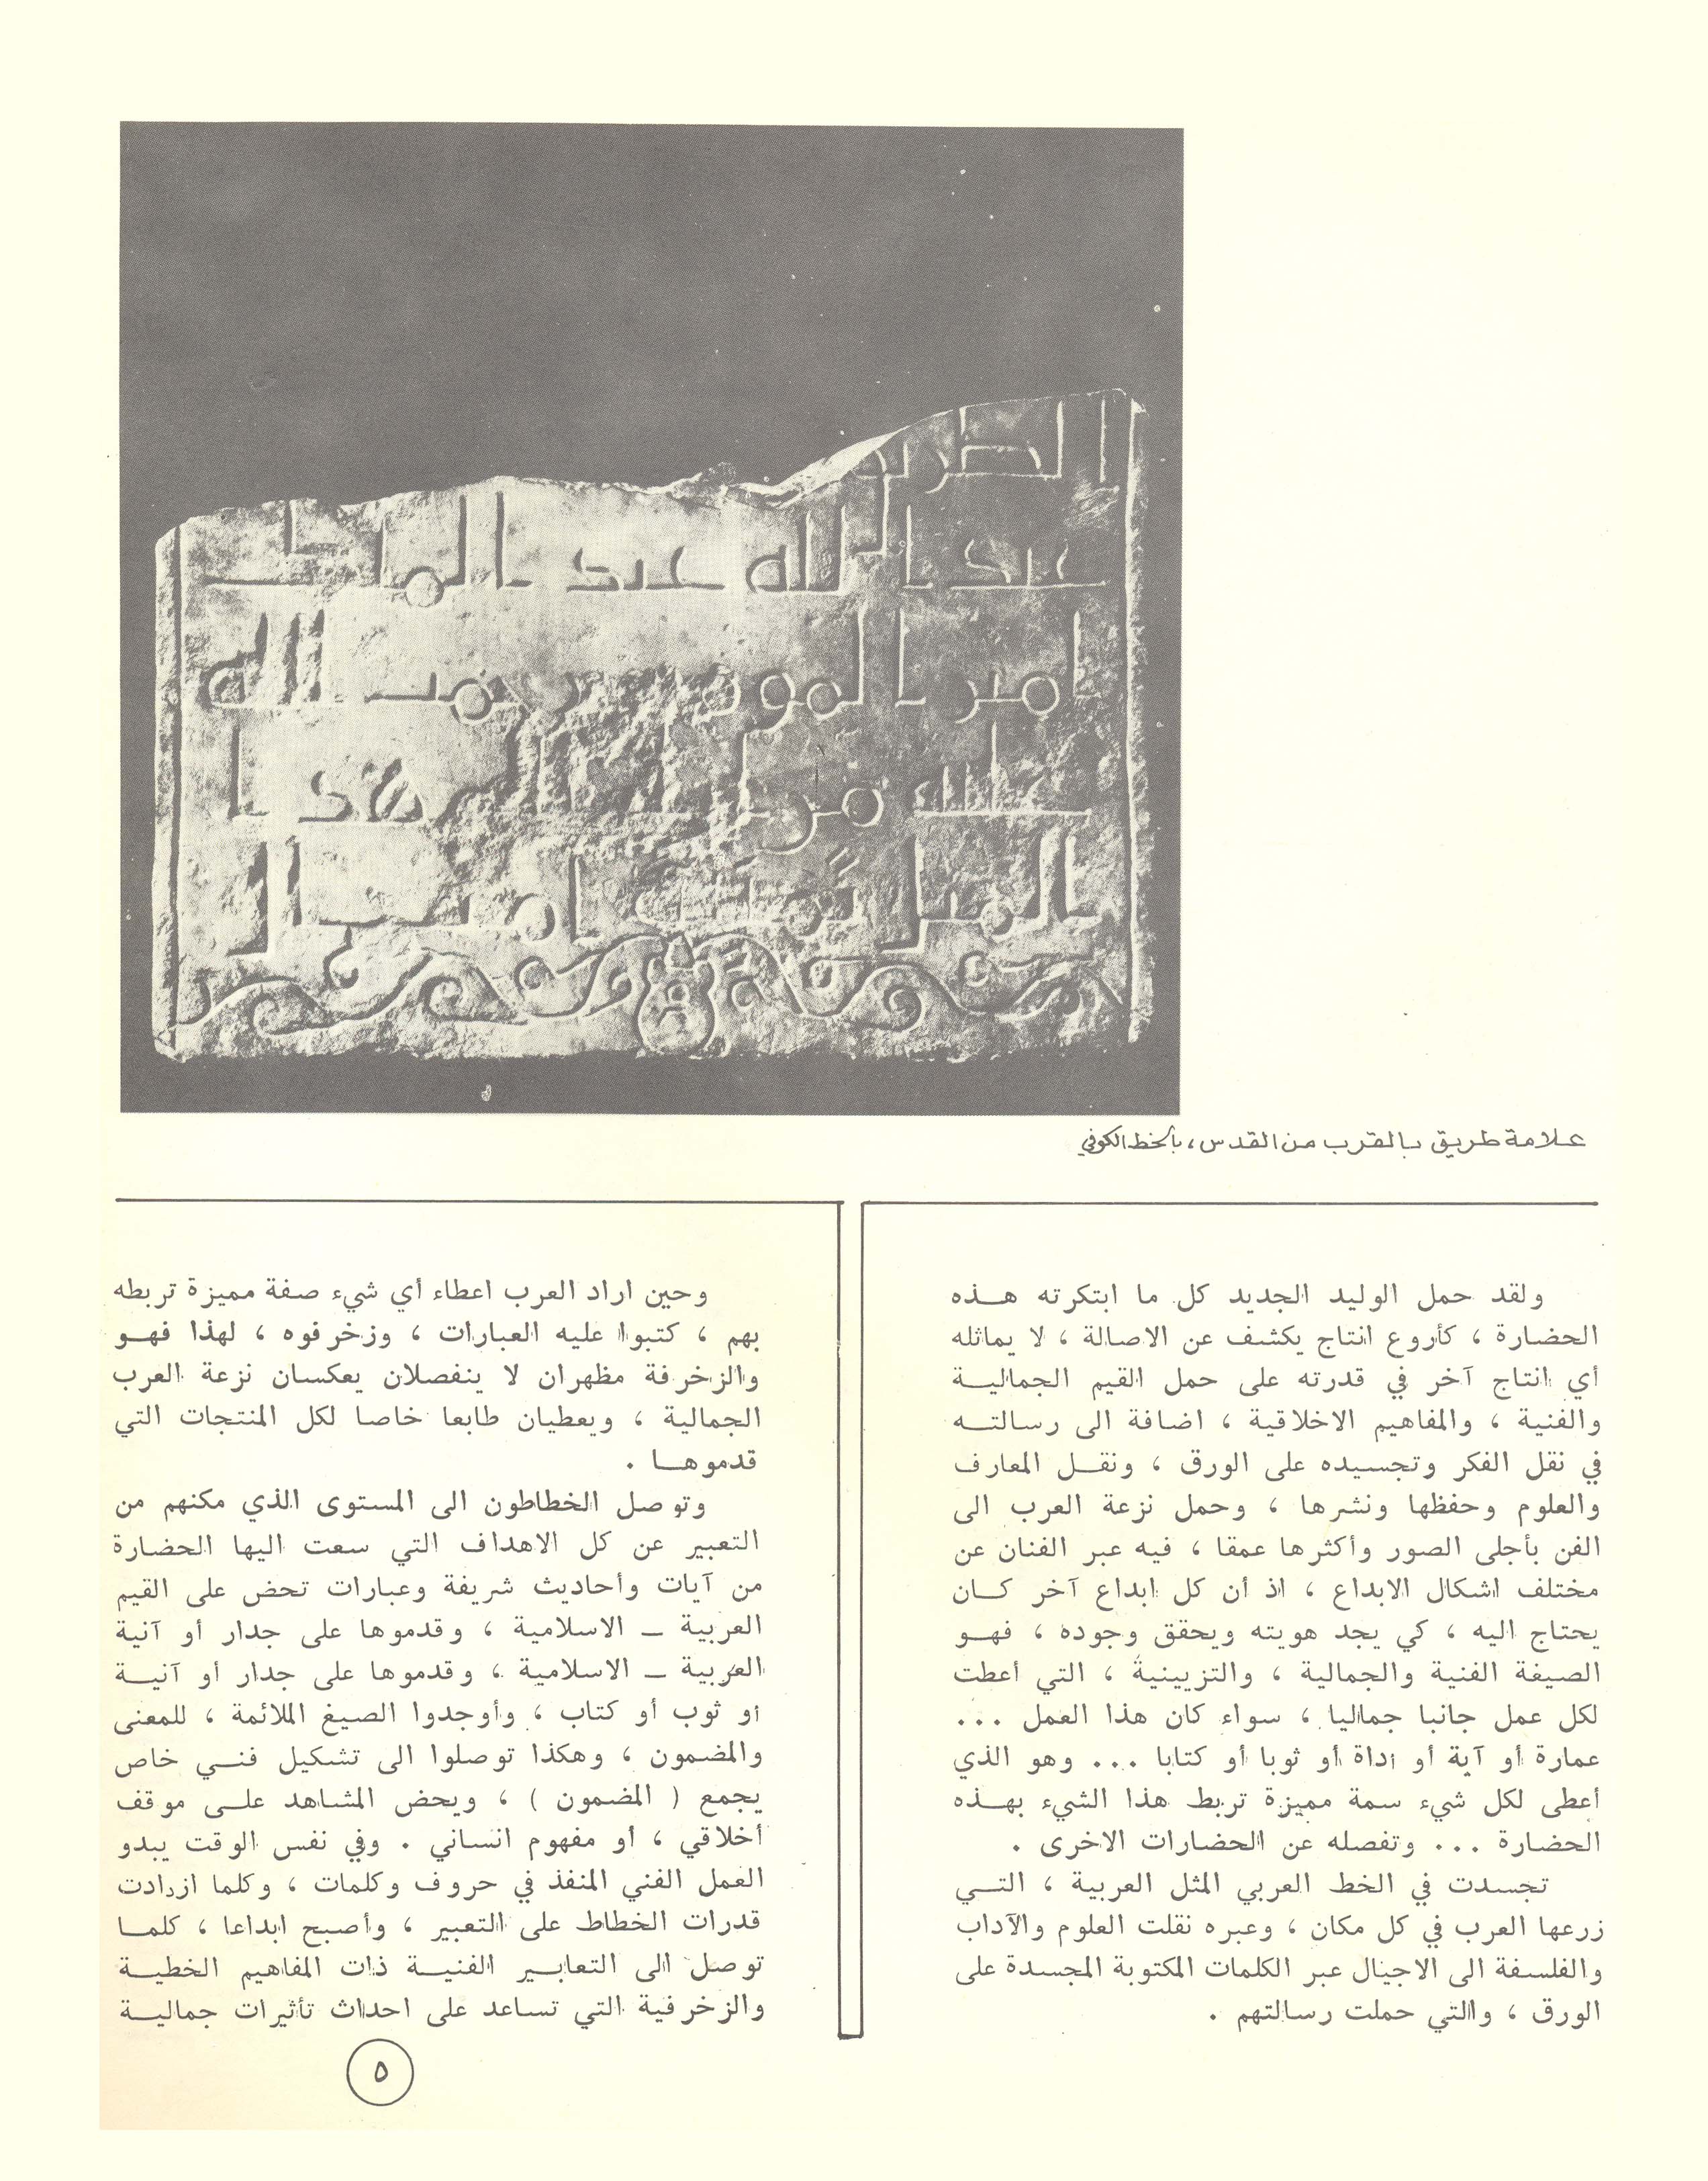 الطريق
عبد الله عبد الملك
امير المومنين رحمت الله
عليه من ايليا الى هذا
الميل ثمنية اميال
علامة طريق بالقرب من القدس ، بالخط الكوفي
ولقد حمل الوليد الجديد كل ما ابتكرته هذه
الحضارة ، كأروع انتاج يكشف عن الاصالة ، لا يماثله
أي انتاج آخر في قدرته على حمل القيم الجمالية
والفنية ، والمفاهيم الاخلاقية ، اضافة الى رسالته
في نقل الفكر وتجسيده على الورق ، ونقل المعارف
والعلوم وحفظها ونشرها ، وحمل نزعة العرب الى
الفن بأجلى الصور وأكثرها عمقا ، فيه عبر الفنان عن
مختلف اشكال الابداع ، اذ أن كل ابداع آخر كان
يحتاج اليه ، كي يجد هويته ويحقق وجوده ، فهو
الصيغة الفنية والجمالية ، والتزيينية ، التي أعطت
لكل عمل جانبا جماليا ، سواء كان هذا العمل ...
عمارة أو آية أو اداة أو ثوبا أو كتابا ... وهو الذي
أعطى لكل شيء سمة مميزة تربط هذا الشيء بهذه
الحضارة ... وتفصله عن الحضارات الاخرى .
تجسدت في الخط العربي المثل العربية ، التي
زرعها العرب في كل مكان ، وعبره نقلت العلوم والآداب
والفلسفة الى الاجيال عبر الكلمات المكتوبة المجسدة على
الورق ، والتي حملت رسالتهم .
وحين اراد العرب اعطاء أي شيء صفة مميزة تربطه
بهم ، كتبوا عليه العبارات ، وزخرفوه ، لهذا فهو
والزخرفة مظهران لا ينفصلان يعكسان نزعة العرب
الجمالية ، ويعطيان طابعا خاصا لكل المنتجات التي
قدموها .
وتوصل الخطاطون الى المستوى الذي مكنهم من
التعبير عن كل الاهداف التي سعت اليها الحضارة
من آيات وأحاديث شريفة وعبارات تحض على القيم
العربية ــ الاسلامية ، وقدموها على جدار أو آنية
العربية ــ الاسلامية ، وقدموها على جدار أو آنية
أو ثوب أو كتاب ، وأوجدوا الصيغ الملائمة ، للمعنى
والمضمون ، وهكذا توصلوا الى تشكيل فني خاص
يجمع ( المضمون ) ، ويحض المشاهد على موقف
أخلاقي ، أو مفهوم انساني . وفي نفس الوقت يبدو
العمل الفني المنفذ في حروف وكلمات ، وكلما ازدادت
قدرات الخطاط على التعبير ، وأصبح ابداعا ، كلما
توصل الى التعابير الفنية ذات المفاهيم الخطية
والزخرفية التي تساعد على احداث تأثيرات جمالية
٥